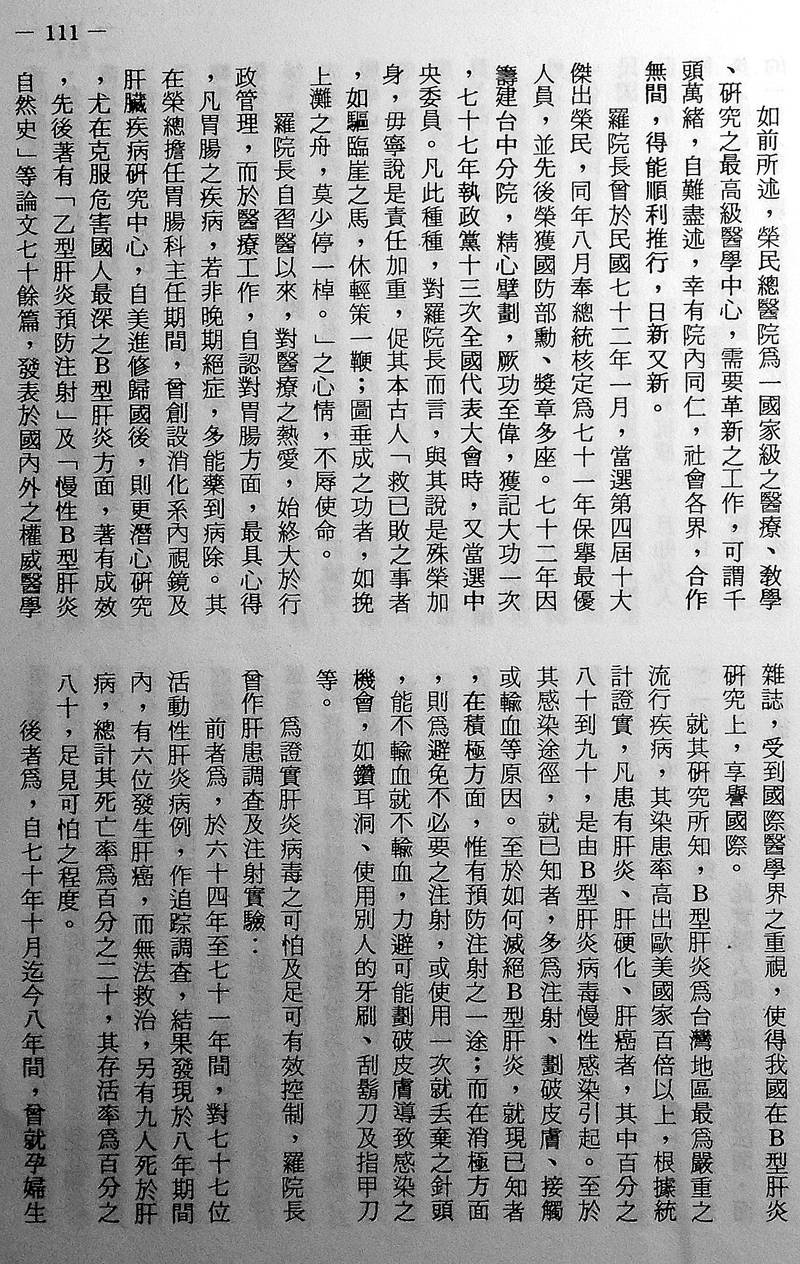 — 111 —
如前所述，榮民總醫院爲一國家級之醫療、教學
、研究之最高級醫學中心，需要革新之工作，可謂千
頭萬緒，自難盡述，幸有院內同仁，社會各界，合作
無間，得能順利推行，日新又新。
羅院長曾於民國七十二年一月，當選第四屆十大
傑出榮民，同年八月奉總統核定爲七十一年保舉最優
人員，並先後榮獲國防部勳、獎章多座。七十二年因
籌建台中分院，精心擘劃，厥功至偉，獲記大功一次
，七十七年執政黨十三次全國代表大會時，又當選中
央委員。凡此種種，對羅院長而言，與其說是殊榮加
身，毋寧說是責任加重，促其本古人「救已敗之事者
，如驅臨崖之馬，休輕策一鞭；圖垂成之功者，如挽
上灘之舟，莫少停一棹。」之心情，不辱使命。
羅院長自習醫以來，對醫療之熱愛，始終大於行
政管理，而於醫療工作，自認對胃腸方面，最具心得
，凡胃腸之疾病，若非晚期絕症，多能藥到病除。其
在榮總擔任胃腸科主任期間，曾創設消化系內視鏡及
肝臟疾病研究中心，自美進修歸國後，則更潛心研究
，尤在克服危害國人最深之B型肝炎方面，著有成效
，先後著有「乙型肝炎預防注射」及「慢性B型肝炎
自然史」等論文七十餘篇，發表於國內外之權威醫學
雜誌，受到國際醫學界之重視，使得我國在B型肝炎
研究上，享譽國際。
就其研究所知，B型肝炎爲台灣地區最爲嚴重之
流行疾病，其染患率高出歐美國家百倍以上，根據統
計證實，凡患有肝炎、肝硬化、肝癌者，其中百分之
八十到九十，是由B型肝炎病毒慢性感染引起。至於
其感染途徑，就已知者，多爲注射、劃破皮膚、接觸
或輸血等原因。至於如何滅絕B型肝炎，就現已知者
，在積極方面，惟有預防注射之一途；而在消極方面
，則爲避免不必要之注射，或使用一次就丟棄之針頭
，能不輸血就不輸血，力避可能劃破皮膚導致感染之
機會，如鑽耳洞、使用別人的牙刷、刮鬍刀及指甲刀
等。
爲證實肝炎病毒之可怕及足可有效控制，羅院長
曾作肝患調查及注射實驗：
前者爲，於六十四年至七十一年間，對七十七位
活動性肝炎病例，作追踪調查，結果發現於八年期間
內，有六位發生肝癌，而無法救治，另有九人死於肝
病，總計其死亡率爲百分之二十，其存活率爲百分之
八十，足見可怕之程度。
後者爲，自七十年十月迄今八年間，曾就孕婦生